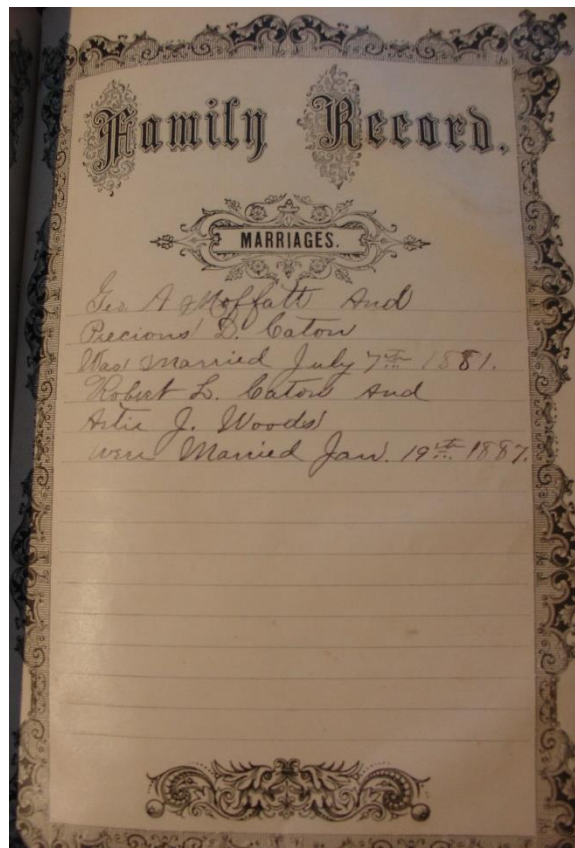 Family Record.
MARRIAGES.
Geo A Moffatt And
Precious D. Caton
Was Married July 7th 1881.
Robert L. Caton And
Artie J. Woods
were Married Jan. 19th 1887.